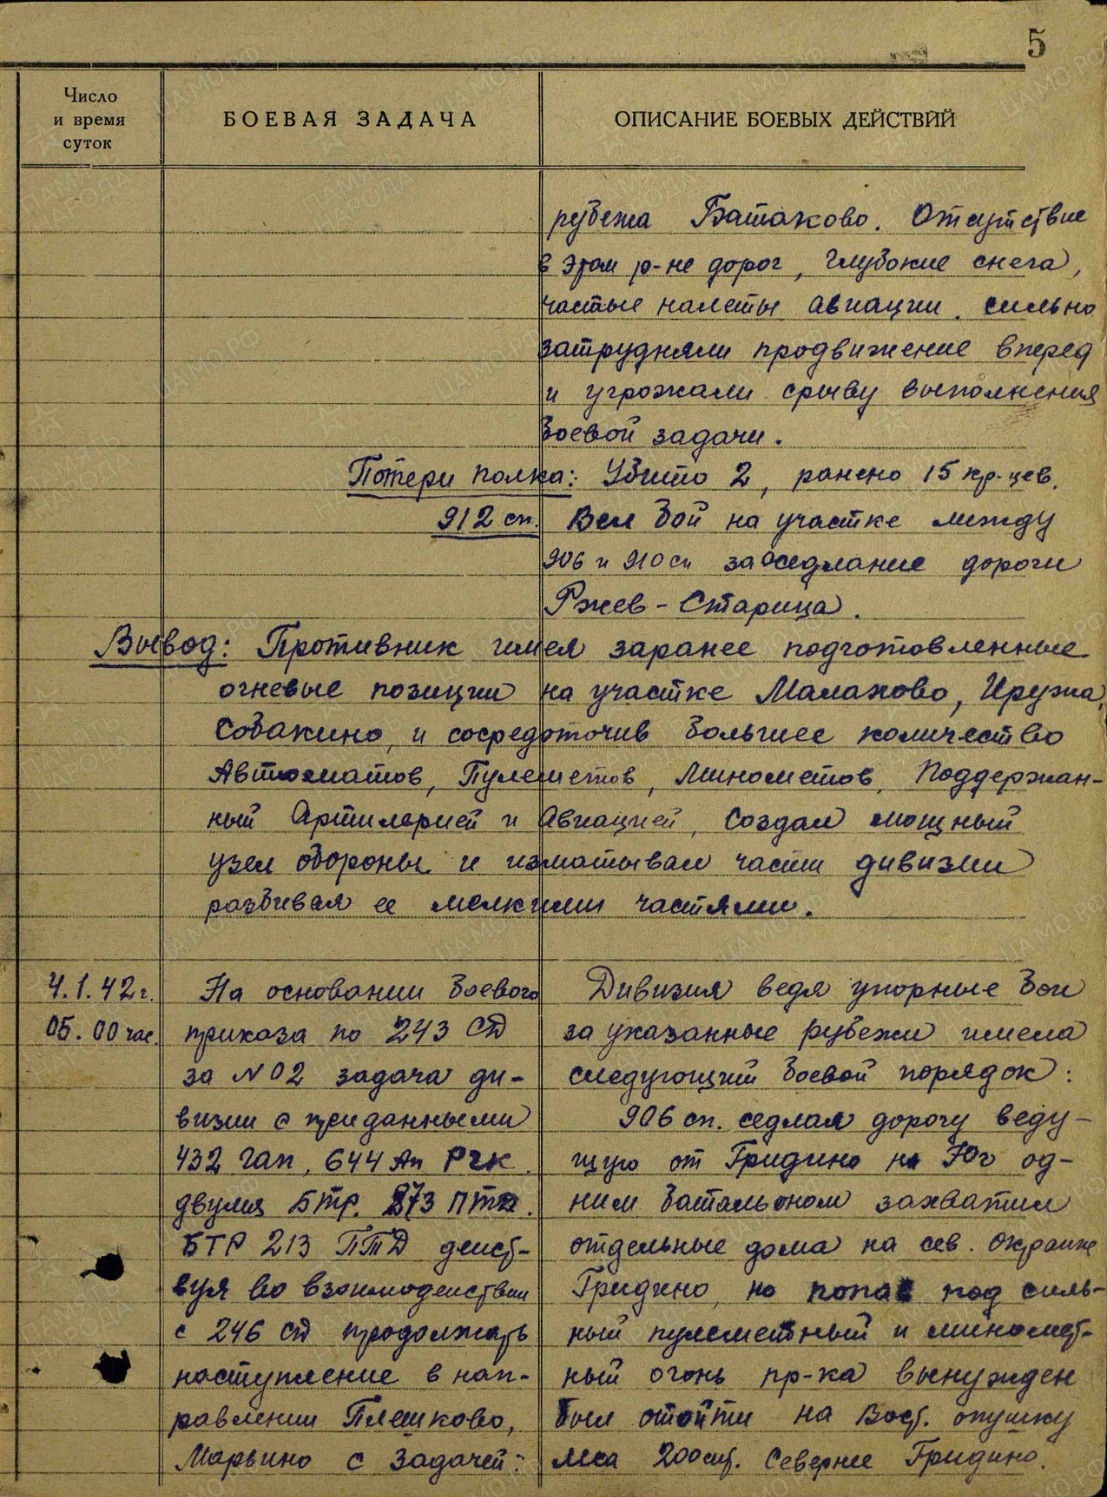 5
Число
и время
суток
БОЕВАЯ ЗАДАЧА
ОПИСАНИЕ БОЕВЫХ ДЕЙСТВИЙ
рубежа Батаково. Отсутствие
в этом р-не дорог, глубокие снега,
частые налеты авиации. сильно
затрудняли продвижение вперед
и угрожали срыву выполнения
боевой задачи.
Потери полка: Убито 2, ранено 15 кр-цев.
912 сп. Вел бой на участке между
906 и 910 сп за оседлание дороги
Ржев - Старица.
Вывод: Противник имея заранее подготовленные
огневые позиции на участке Малахово, Иружа,
Собакино, и сосредоточив большее количество
Автоматов, Пулеметов, Минометов, Поддержан-
ный Артилерией и Авиацией, создал мощный
узел обороны и изматывал части дивизии
разбивая ее мелкими частями.
4.1.42 г.
05.00 час.
На основании боевого
приказа по 243 СД
за №02 задача ди-
визии с приданными
432 гап, 644 Ап РГК
двумя БТР. 873 ПТД.
БТР 213 ПТД дейст-
вуя во взаимодействии
с 246 сд продолжать
наступление в нап-
равлении Плешково,
Марьино с Задачей:
Дивизия ведя упорные бои
за указанные рубежи имела
следующий боевой порядок:
906 сп. седлал дорогу веду-
щую от Гридино на Юг од-
ним батальоном захватил
отдельные дома на сев. окраине
Гридино, но попав под силь-
ный пулеметный и миномет-
ный огонь пр-ка вынужден
был отойти на Вост. опушку
леса 200 мт. Севернее Гридино.